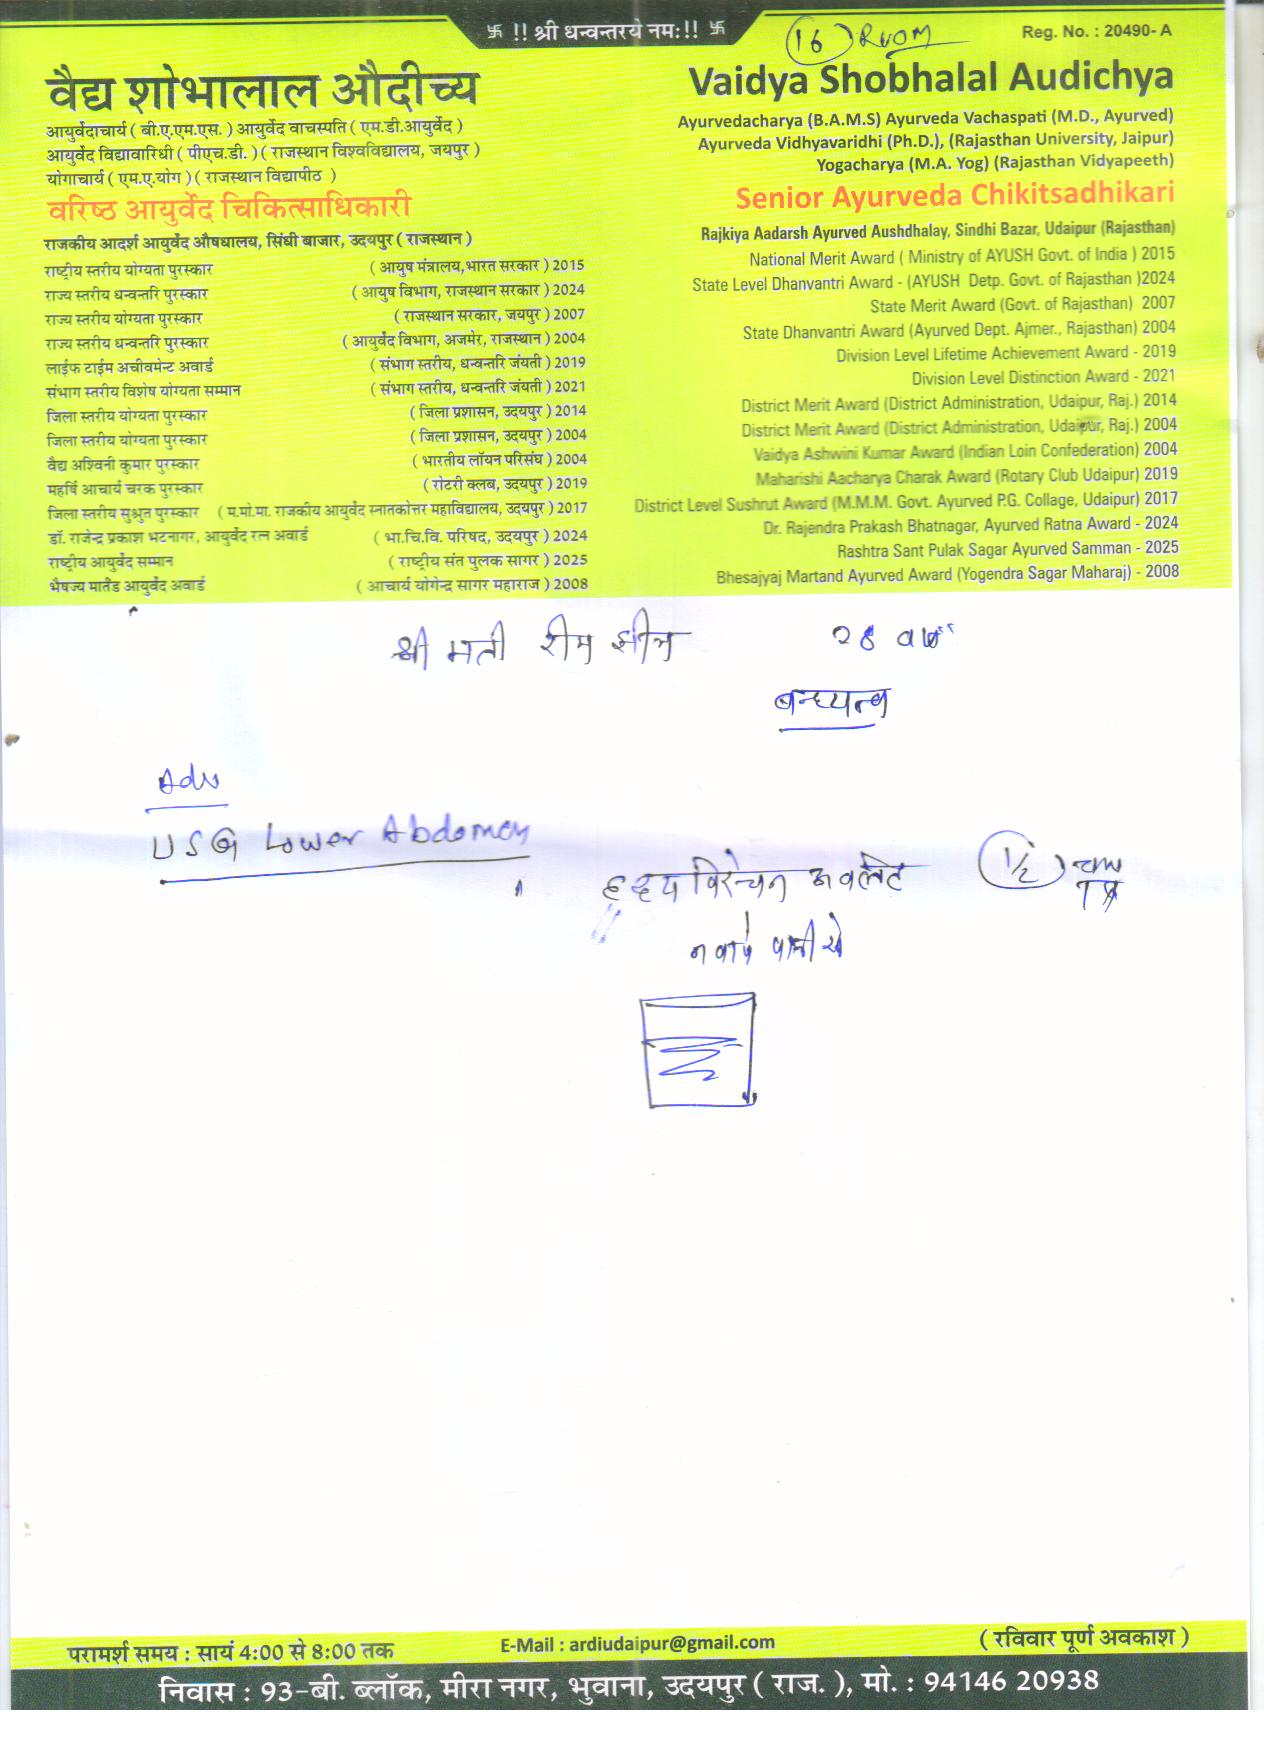 卐 !! श्री धन्वन्तरये नमः!! 卐
16 ROOM
Reg. No. : 20490- A
वैद्य शोभालाल औदीच्य
आयुर्वेदाचार्य ( बी.ए.एम.एस. ) आयुर्वेद वाचस्पति ( एम.डी.आयुर्वेद )
आयुर्वेद विद्यावारिधी ( पीएच.डी. ) ( राजस्थान विश्वविद्यालय, जयपुर )
योगाचार्य ( एम.ए.योग ) ( राजस्थान विद्यापीठ )
वरिष्ठ आयुर्वेद चिकित्साधिकारी
राजकीय आदर्श आयुर्वेद औषधालय, सिंधी बाजार, उदयपुर ( राजस्थान )
राष्ट्रीय स्तरीय योग्यता पुरस्कार ( आयुष मंत्रालय,भारत सरकार ) 2015
राज्य स्तरीय धन्वन्तरि पुरस्कार ( आयुष विभाग, राजस्थान सरकार ) 2024
राज्य स्तरीय योग्यता पुरस्कार ( राजस्थान सरकार, जयपुर ) 2007
राज्य स्तरीय धन्वन्तरि पुरस्कार ( आयुर्वेद विभाग, अजमेर, राजस्थान ) 2004
लाईफ टाईम अचीवमेन्ट अवार्ड ( संभाग स्तरीय, धन्वन्तरि जंयती ) 2019
संभाग स्तरीय विशेष योग्यता सम्मान ( संभाग स्तरीय, धन्वन्तरि जंयती ) 2021
जिला स्तरीय योग्यता पुरस्कार ( जिला प्रशासन, उदयपुर ) 2014
जिला स्तरीय योग्यता पुरस्कार ( जिला प्रशासन, उदयपुर ) 2004
वैद्य अश्विनी कुमार पुरस्कार ( भारतीय लॉयन परिसंघ ) 2004
महर्षि आचार्य चरक पुरस्कार ( रोटरी क्लब, उदयपुर ) 2019
जिला स्तरीय सुश्रुत पुरस्कार ( म.मो.मा. राजकीय आयुर्वेद स्नातकोत्तर महाविद्यालय, उदयपुर ) 2017
डॉ. राजेन्द्र प्रकाश भटनागर, आयुर्वेद रत्न अवार्ड ( भा.चि.वि. परिषद, उदयपुर ) 2024
राष्ट्रीय आयुर्वेद सम्मान ( राष्ट्रीय संत पुलक सागर ) 2025
भैषज्य मार्तंड आयुर्वेद अवार्ड ( आचार्य योगेन्द्र सागर महाराज ) 2008
Vaidya Shobhalal Audichya
Ayurvedacharya (B.A.M.S) Ayurveda Vachaspati (M.D., Ayurved)
Ayurveda Vidhyavaridhi (Ph.D.), (Rajasthan University, Jaipur)
Yogacharya (M.A. Yog) (Rajasthan Vidyapeeth)
Senior Ayurveda Chikitsadhikari
Rajkiya Aadarsh Ayurved Aushdhalay, Sindhi Bazar, Udaipur (Rajasthan)
National Merit Award ( Ministry of AYUSH Govt. of India ) 2015
State Level Dhanvantri Award - (AYUSH Detp. Govt. of Rajasthan )2024
State Merit Award (Govt. of Rajasthan) 2007
State Dhanvantri Award (Ayurved Dept. Ajmer., Rajasthan) 2004
Division Level Lifetime Achievement Award - 2019
Division Level Distinction Award - 2021
District Merit Award (District Administration, Udaipur, Raj.) 2014
District Merit Award (District Administration, Udaipur, Raj.) 2004
Vaidya Ashwini Kumar Award (Indian Loin Confederation) 2004
Maharishi Aacharya Charak Award (Rotary Club Udaipur) 2019
District Level Sushrut Award (M.M.M. Govt. Ayurved P.G. Collage, Udaipur) 2017
Dr. Rajendra Prakash Bhatnagar, Ayurved Ratna Award - 2024
Rashtra Sant Pulak Sagar Ayurved Samman - 2025
Bhesajyaj Martand Ayurved Award (Yogendra Sagar Maharaj) - 2008
श्रीमती
बन्ध्यत्व
Adv
USG Lower Abdomen
विरेचन अवलेह 1/2
परामर्श समय : सायं 4:00 से 8:00 तक
E-Mail : ardiudaipur@gmail.com
( रविवार पूर्ण अवकाश )
निवास : 93-बी. ब्लॉक, मीरा नगर, भुवाना, उदयपुर ( राज. ), मो. : 94146 20938